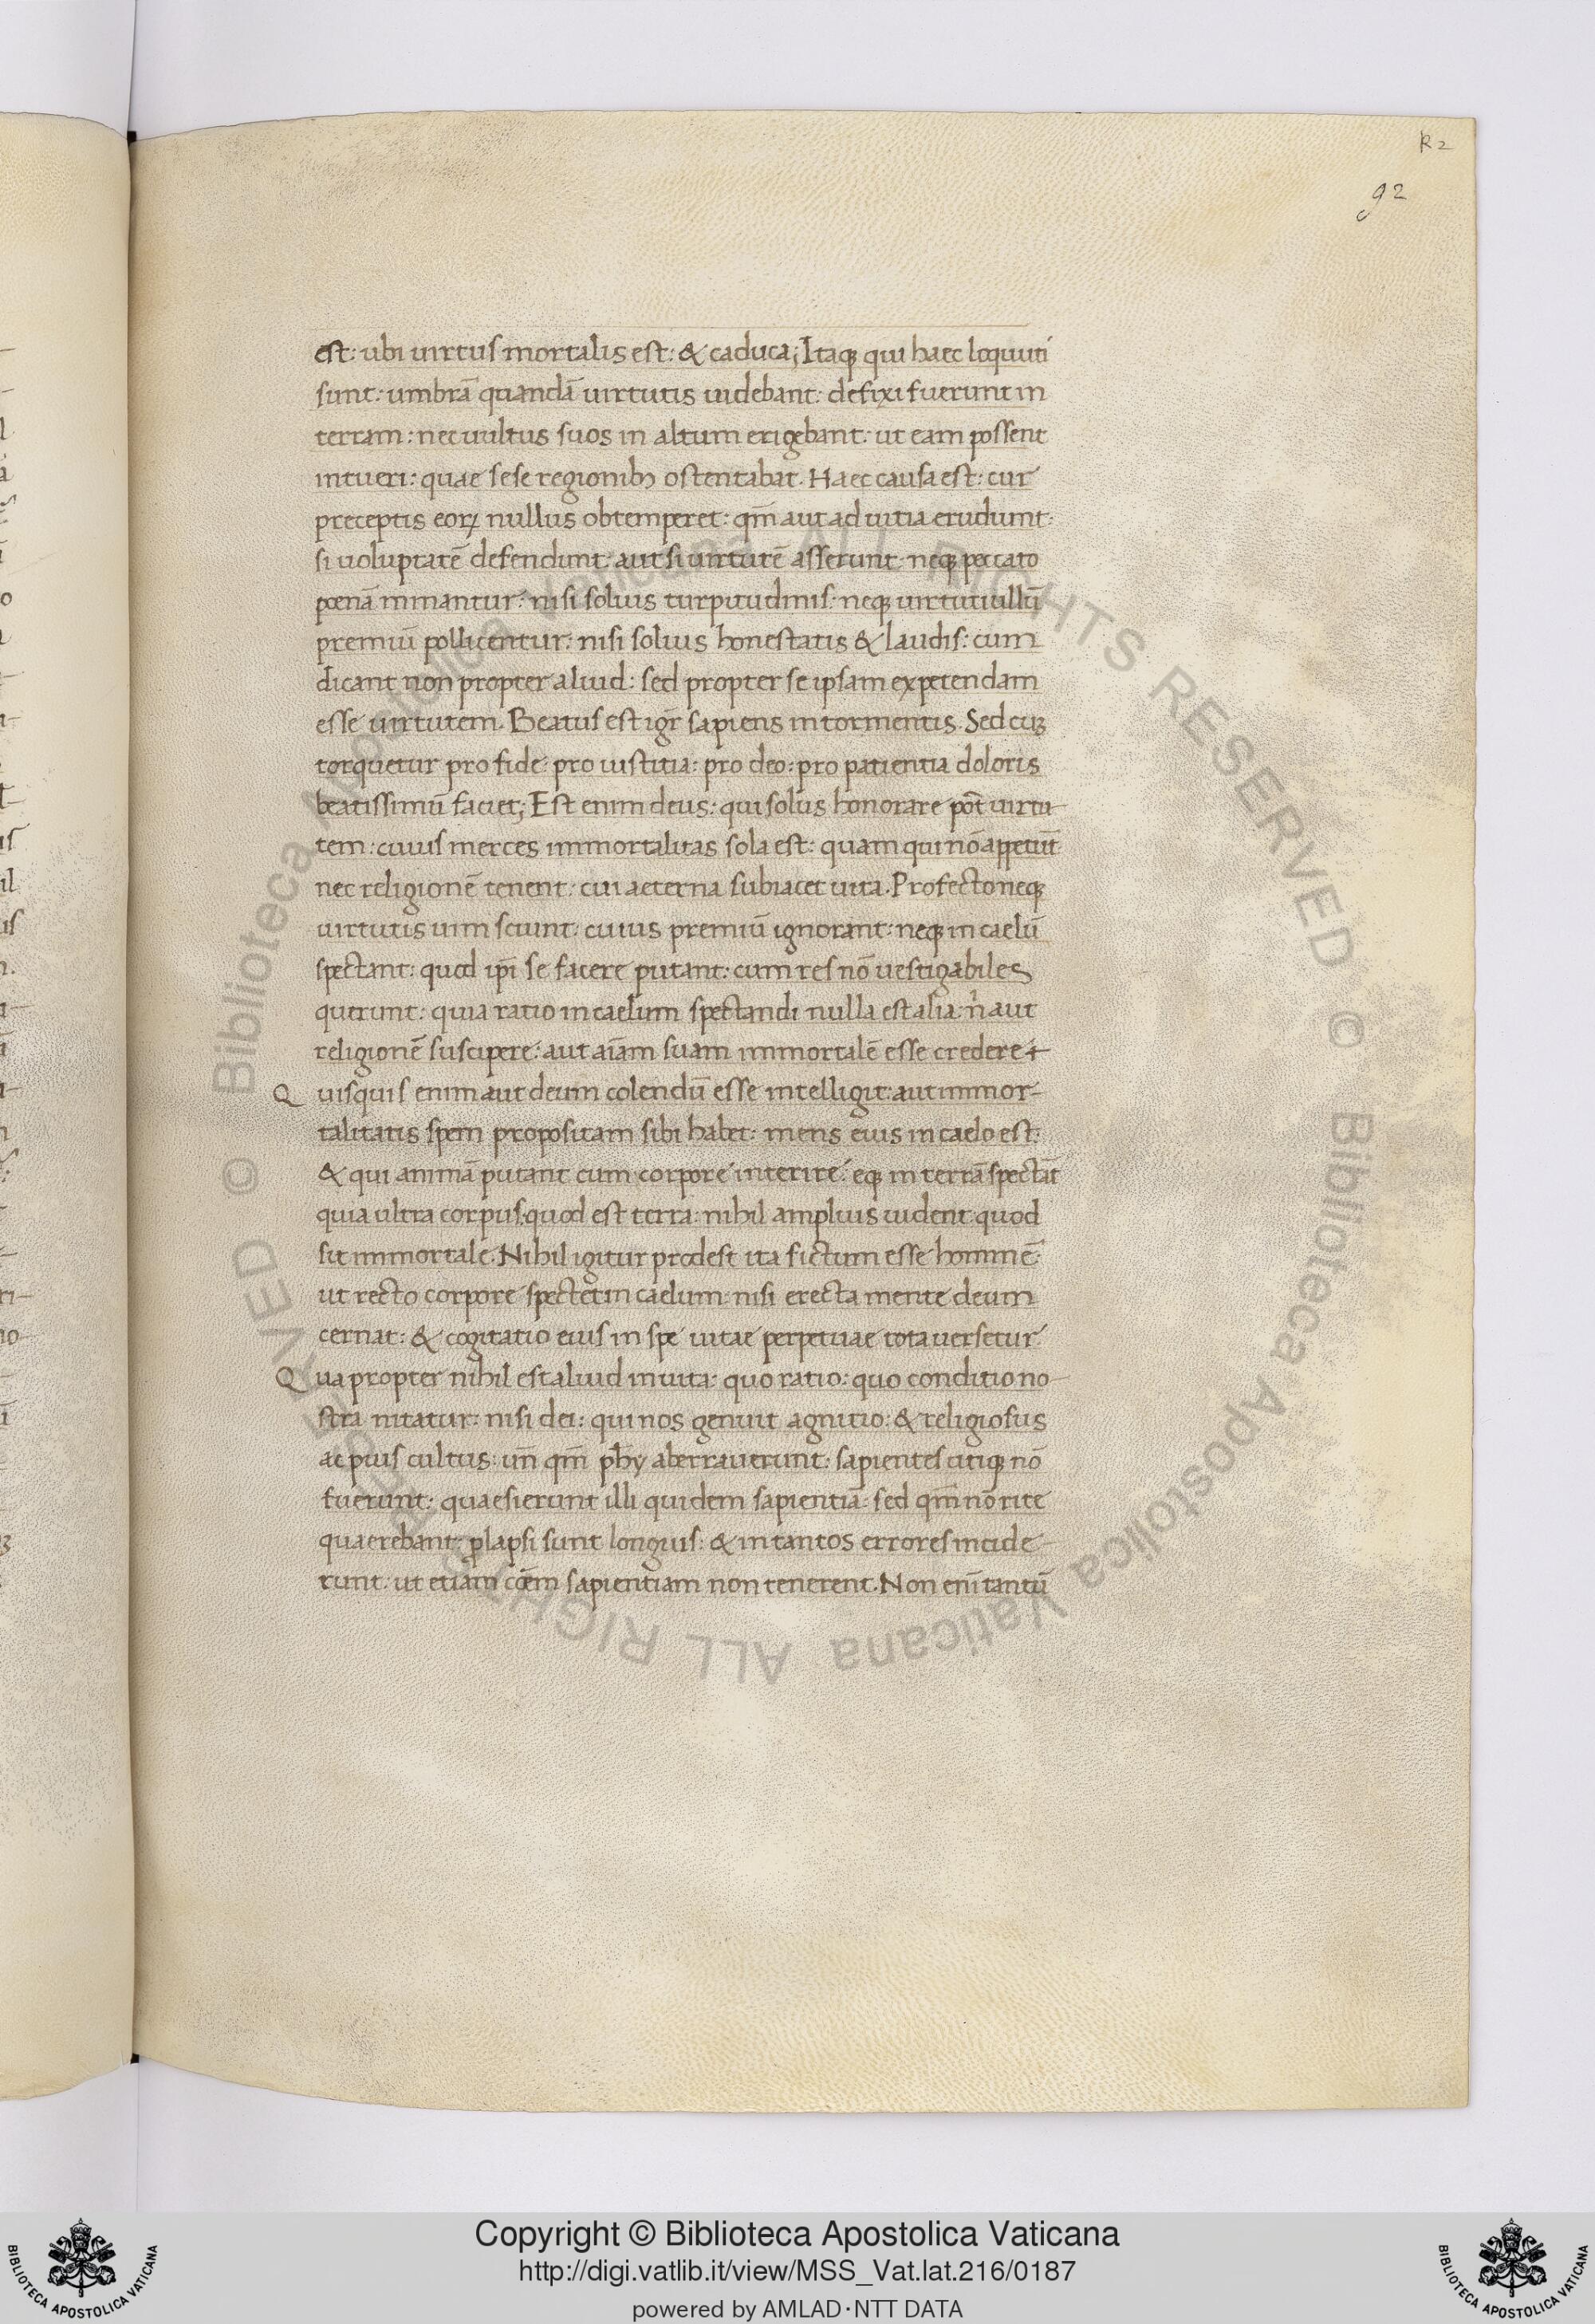 R 2
92
est: ubi uirtus mortalis est: & caduca; Itaqꝫ qui haec loquuti
sunt: umbrā quandā uirtutis uidebant: defixi fuerunt in
terram: nec uultus suos in altum erigebant: ut eam possent
intueri: quae sese regionibꝫ ostentabat. Haec causa est: cur
preceptis eoꝝ nullus obtemperet: qm̄ aut ad uitia erudiunt:
si uoluptatē defendunt: aut si uirtutē asserunt: neqꝫ peccato
poenā minantur: nisi solius turpitudinis: neqꝫ uirtuti ullū
premiū pollicentur: nisi solius honestatis & laudis: cum
dicant non propter aliud: sed propter se ipsam expetendam
esse uirtutem. Beatus est igr̄ sapiens in tormentis. Sed cuꝫ
torquetur pro fide: pro iustitia: pro deo: pro patientia doloris
beatissimū faciet; Est enim deus: qui solus honorare pōt uirtu-
tem: cuius merces immortalitas sola est: quam qui nō appetūt
nec religionē tenent: cui aeterna subiacet uita. Profecto neqꝫ
uirtutis uim sciunt: cuius premiū ignorant: neqꝫ in caelū
spectant: quod ip̄i se facere putant: cum res nō uestigabiles
querunt: quia ratio in caelum spectandi nulla est alia: n̄ aut
religionē suscipere: aut aīam suam immortalē esse credere
Quisquis enim aut deum colendū esse intelligit: aut immor-
talitatis spem propositam sibi habet: mens eius in caelo est:
& qui animā putant cum corpore interire: eqꝫ in terrā spectāt
quia ultra corpus: quod est terra: nihil amplius uident quod
sit immortale. Nihil igitur prodest ita fictum esse hominē:
ut recto corpore spectet in caelum: nisi erecta mente deum
cernat: & cogitatio eius in spe uitae perpetuae tota uersetur:
Qua propter nihil est aliud in uita: quo ratio: quo conditio no-
stra nitatur: nisi dei: qui nos genuit agnitio: & religiosus
ac pius cultus: un̄ qm̄ ph̄y aberrauerunt: sapientes utiqꝫ nō
fuerunt: quaesierunt illi quidem sapientiā: sed qm̄ nō rite
quaerebant: prolapsi sunt longius: & in tantos errores incide-
runt: ut etiam cōem sapientiam non tenerent. Non enī tantū
© Biblioteca Apostolica Vaticana ALL RIGHTS RESERVED © Biblioteca Apostolica Vaticana ALL RIGHTS RESERVED
Copyright © Biblioteca Apostolica Vaticana
http://digi.vatlib.it/view/MSS_Vat.lat.216/0187
powered by AMLAD·NTT DATA
BIBLIOTECA APOSTOLICA VATICANA
BIBLIOTECA APOSTOLICA VATICANA